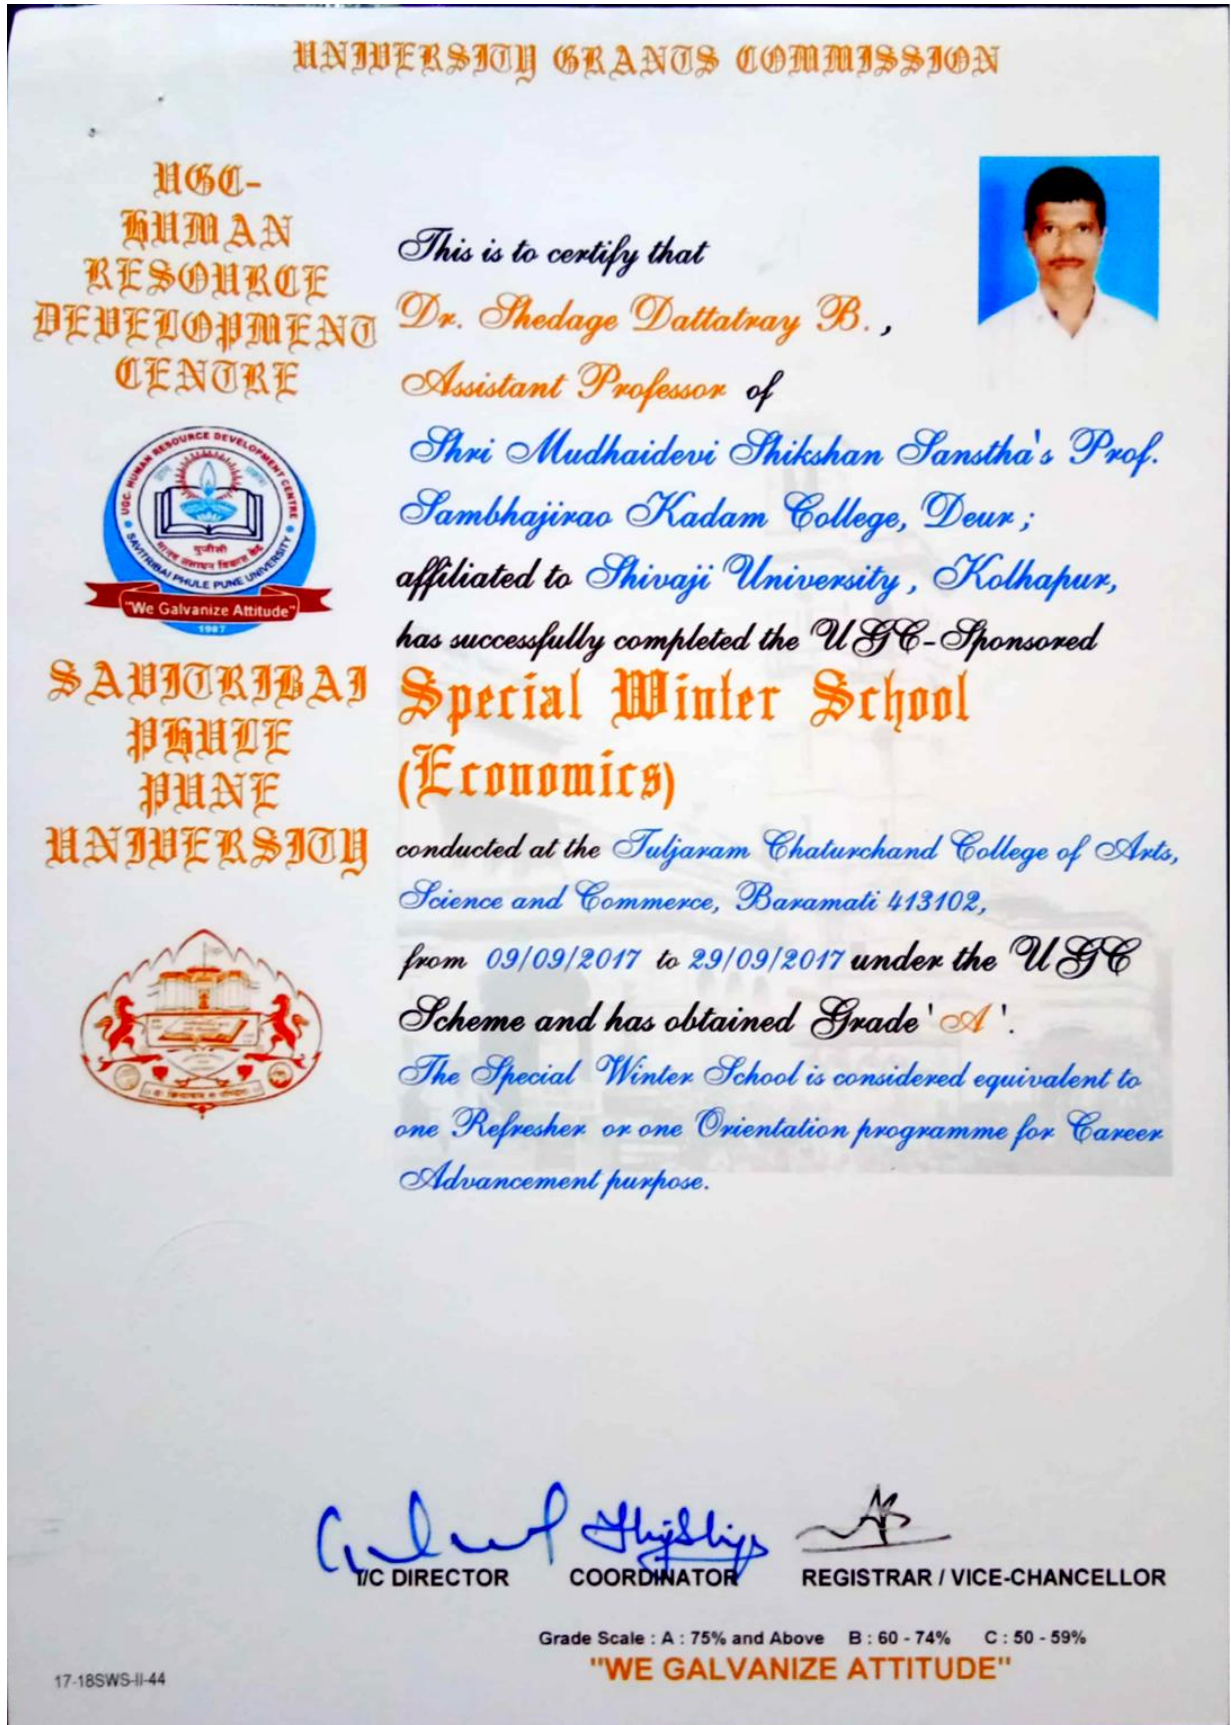 UNIVERSITY GRANTS COMMISSION
UGC-
HUMAN
RESOURCE
DEVELOPMENT
CENTRE
UGC- HUMAN RESOURCE DEVELOPMENT CENTRE
युजीसी
मानव संसाधन विकास केंद्र
SAVITRIBAI PHULE PUNE UNIVERSITY
"We Galvanize Attitude"
1987
SAVITRIBAI
PHULE
PUNE
UNIVERSITY
This is to certify that
Dr. Shedage Dattatray B. ,
Assistant Professor of
Shri Mudhaidevi Shikshan Sanstha's Prof.
Sambhajirao Kadam College, Deur ;
affiliated to Shivaji University , Kolhapur,
has successfully completed the UGC-Sponsored
Special Winter School
(Economics)
conducted at the Tuljaram Chaturchand College of Arts,
Science and Commerce, Baramati 413102,
from 09/09/2017 to 29/09/2017 under the UGC
Scheme and has obtained Grade ' A '.
The Special Winter School is considered equivalent to
one Refresher or one Orientation programme for Career
Advancement purpose.
I/C DIRECTOR COORDINATOR REGISTRAR / VICE-CHANCELLOR
Grade Scale : A : 75% and Above B : 60 - 74% C : 50 - 59%
"WE GALVANIZE ATTITUDE"
17-18SWS-II-44